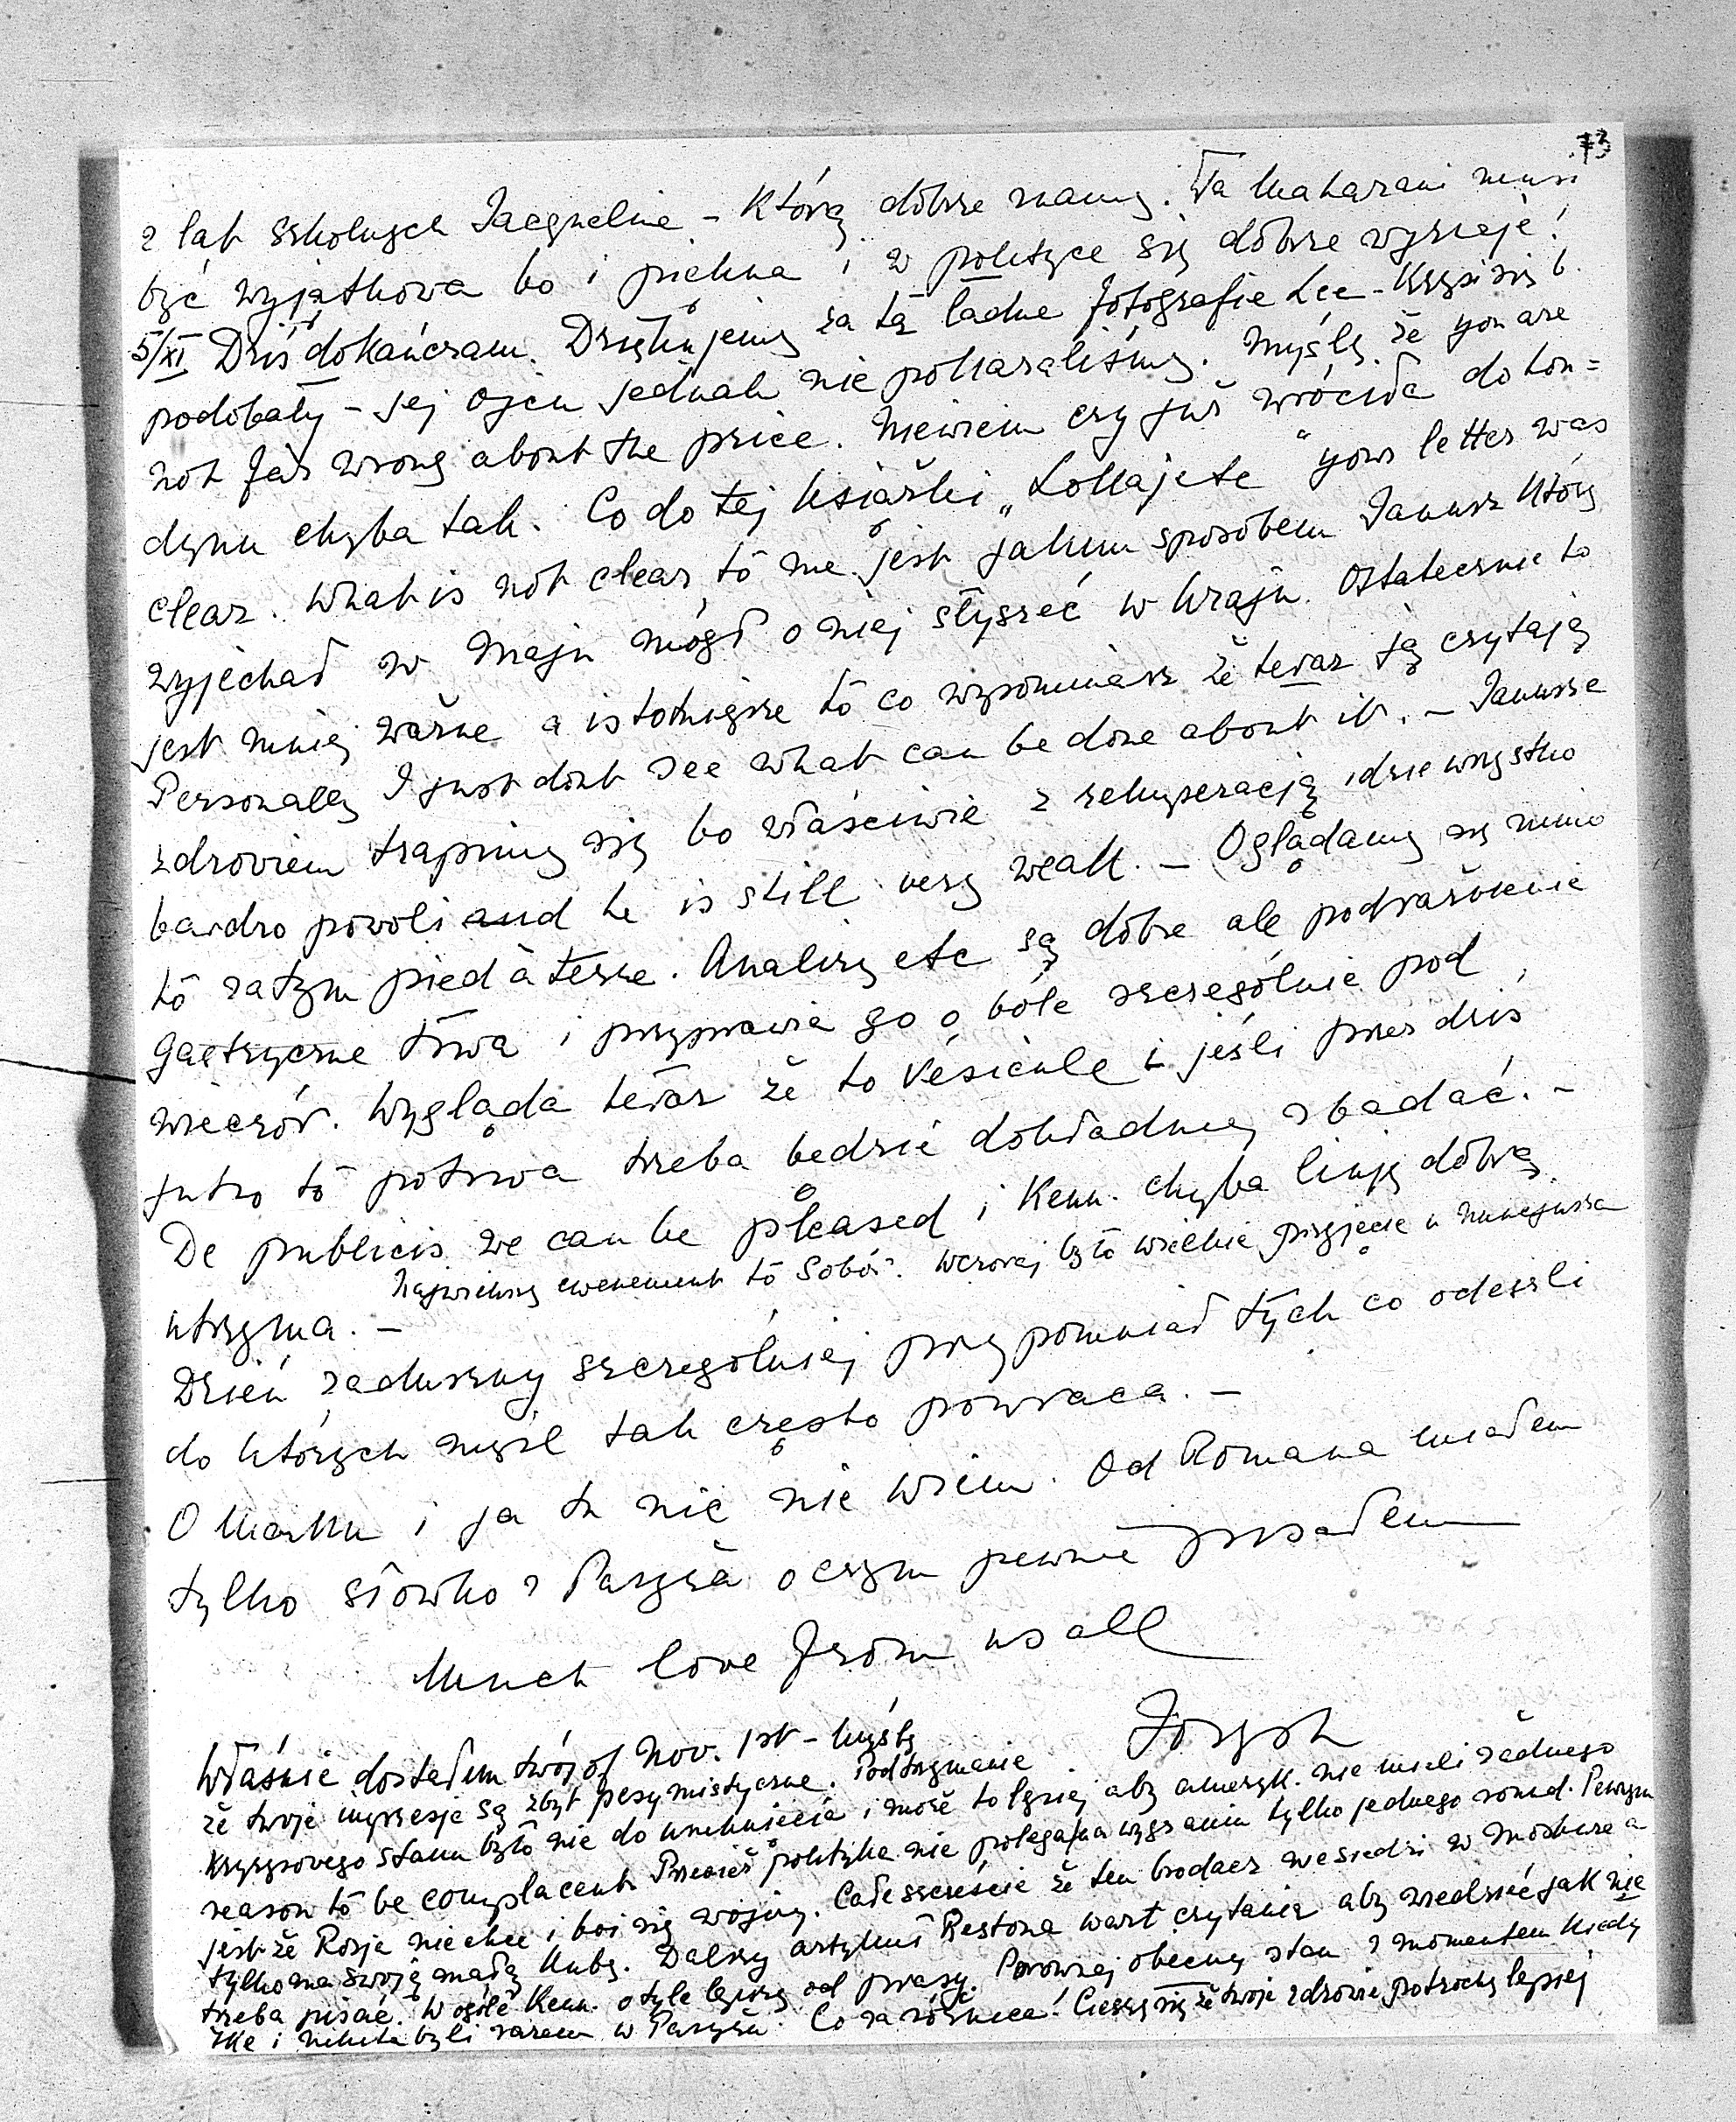 73
z lat szkolnych Jacqueline – którą dobrze znamy. Ta Maharani musi
być wyjątkowa bo i piękna i w polityce się dobrze wyznaje!
5/XI Dziś dokańczam. Dziękujemy za tą ładne fotografie Lee – Krysi się b.
podobały – jej ojcu jednak nie pokazaliśmy. Myślę że you are
not far wrong about the price. Niewiem czy już wróciła do Lon=
dynu chyba tak. Co do tej książki „Lokajete" your letter was
clear. What is not clear to me jest jakim sposobem Janusz który
wyjechał w maju mógł o niej słyszeć w kraju. Ostatecznie to
jest mniej ważne a istotniejsze to co wspominasz że teraz ją czytają
Personally I just dont see what can be done about it. – Janusza
zdrowiem trapimy się bo właściwie z rekuperacją idzie wszystko
bardzo powoli and he is still very weak. – Oglądamy się mimo
to za tym pied à terre. Analizy etc są dobre ale podrażnienie
gastryczne trwa i przyprawia go o bóle szczególnie pod
wieczór. Wygląda teraz że to vésicule i jeśli przez dziś
jutro to potrwa trzeba będzie dokładniej zbadać. –
De publicis we can be pleased i Kenn. chyba linję dobrą
Największy ewenement to Sobór. Wczoraj było wielkie przyjęcie u nuncjusza
utrzyma. –
Dzień zaduszny szczególniej przypomniał tych co odeszli
do których myśl tak często powraca. –
O Marku i ja tu nic nie wiem. Od Romana miałem
tylko słówko z Paryża o czym pewnie pisałem
Much love from us all
Józef
Właśnie dostałem twój of Nov. 1st – myślę
że twoje impresje są zbyt pesymistyczne. Podtrzymanie
kryzysowego stanu było nie do uniknięcia i może to lepiej aby ameryk. nie mieli żadnego
reason to be complacent. Przecież polityka nie polega na wygraniu tylko jednego round. Pewnym
jest że Rosja nie chce i boi się wojny. Całe szczęście że ten brodacz nie siedzi w Moskwie a
tylko ma swoją małą Kubę. Dalszy artykuł Restona wart czytania aby wiedzieć jak nie
trzeba pisać. W ogóle Kenn. o tyle lepszy od prasy. Porównaj obecny stan z momentem kiedy
Ike i Nikita byli razem w Paryżu. Co za różnica! Cieszę się że twoje zdrowie potrochę lepiej